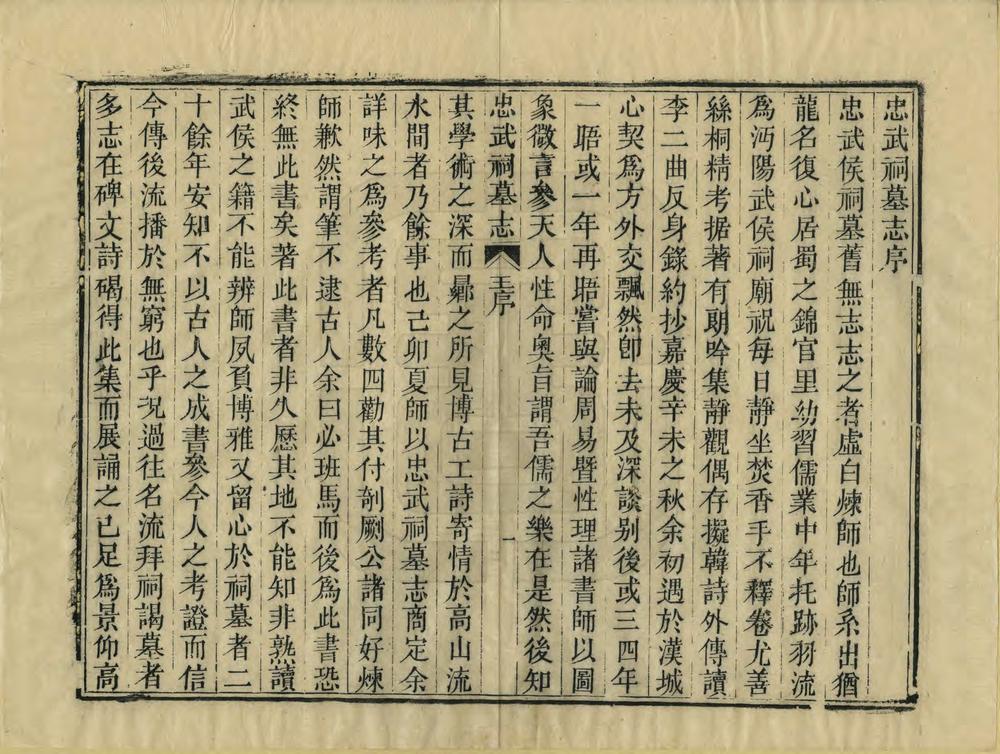 忠武祠墓志序
忠武侯祠墓舊無志志之者虛白煉師也師系出猶
龍名復心居蜀之錦官里幼習儒業中年托跡羽流
為沔陽武侯祠廟祝每日靜坐焚香手不釋卷尤善
絲桐精考据著有朗吟集靜觀偶存擬韓詩外傳讀
李二曲反身錄約抄嘉慶辛未之秋余初遇於漢城
心契為方外交飄然卽去未及深談別後或三四年
一晤或一年再晤嘗與論周易暨性理諸書師以圖
象微言參天人性命奧旨謂吾儒之樂在是然後知
忠武祠墓志 王序 一
其學術之深而曏之所見博古工詩寄情於高山流
水間者乃餘事也己卯夏師以忠武祠墓志商定余
詳味之為參考者凡數四勸其付剞劂公諸同好煉
師歉然謂筆不逮古人余曰必班馬而後為此書恐
終無此書矣著此書者非久歷其地不能知非熟讀
武侯之籍不能辨師夙負博雅又留心於祠墓者二
十餘年安知不以古人之成書參今人之考證而信
今傳後流播於無窮也乎況過往名流拜祠謁墓者
多志在碑文詩碣得此集而展誦之已足為景仰高